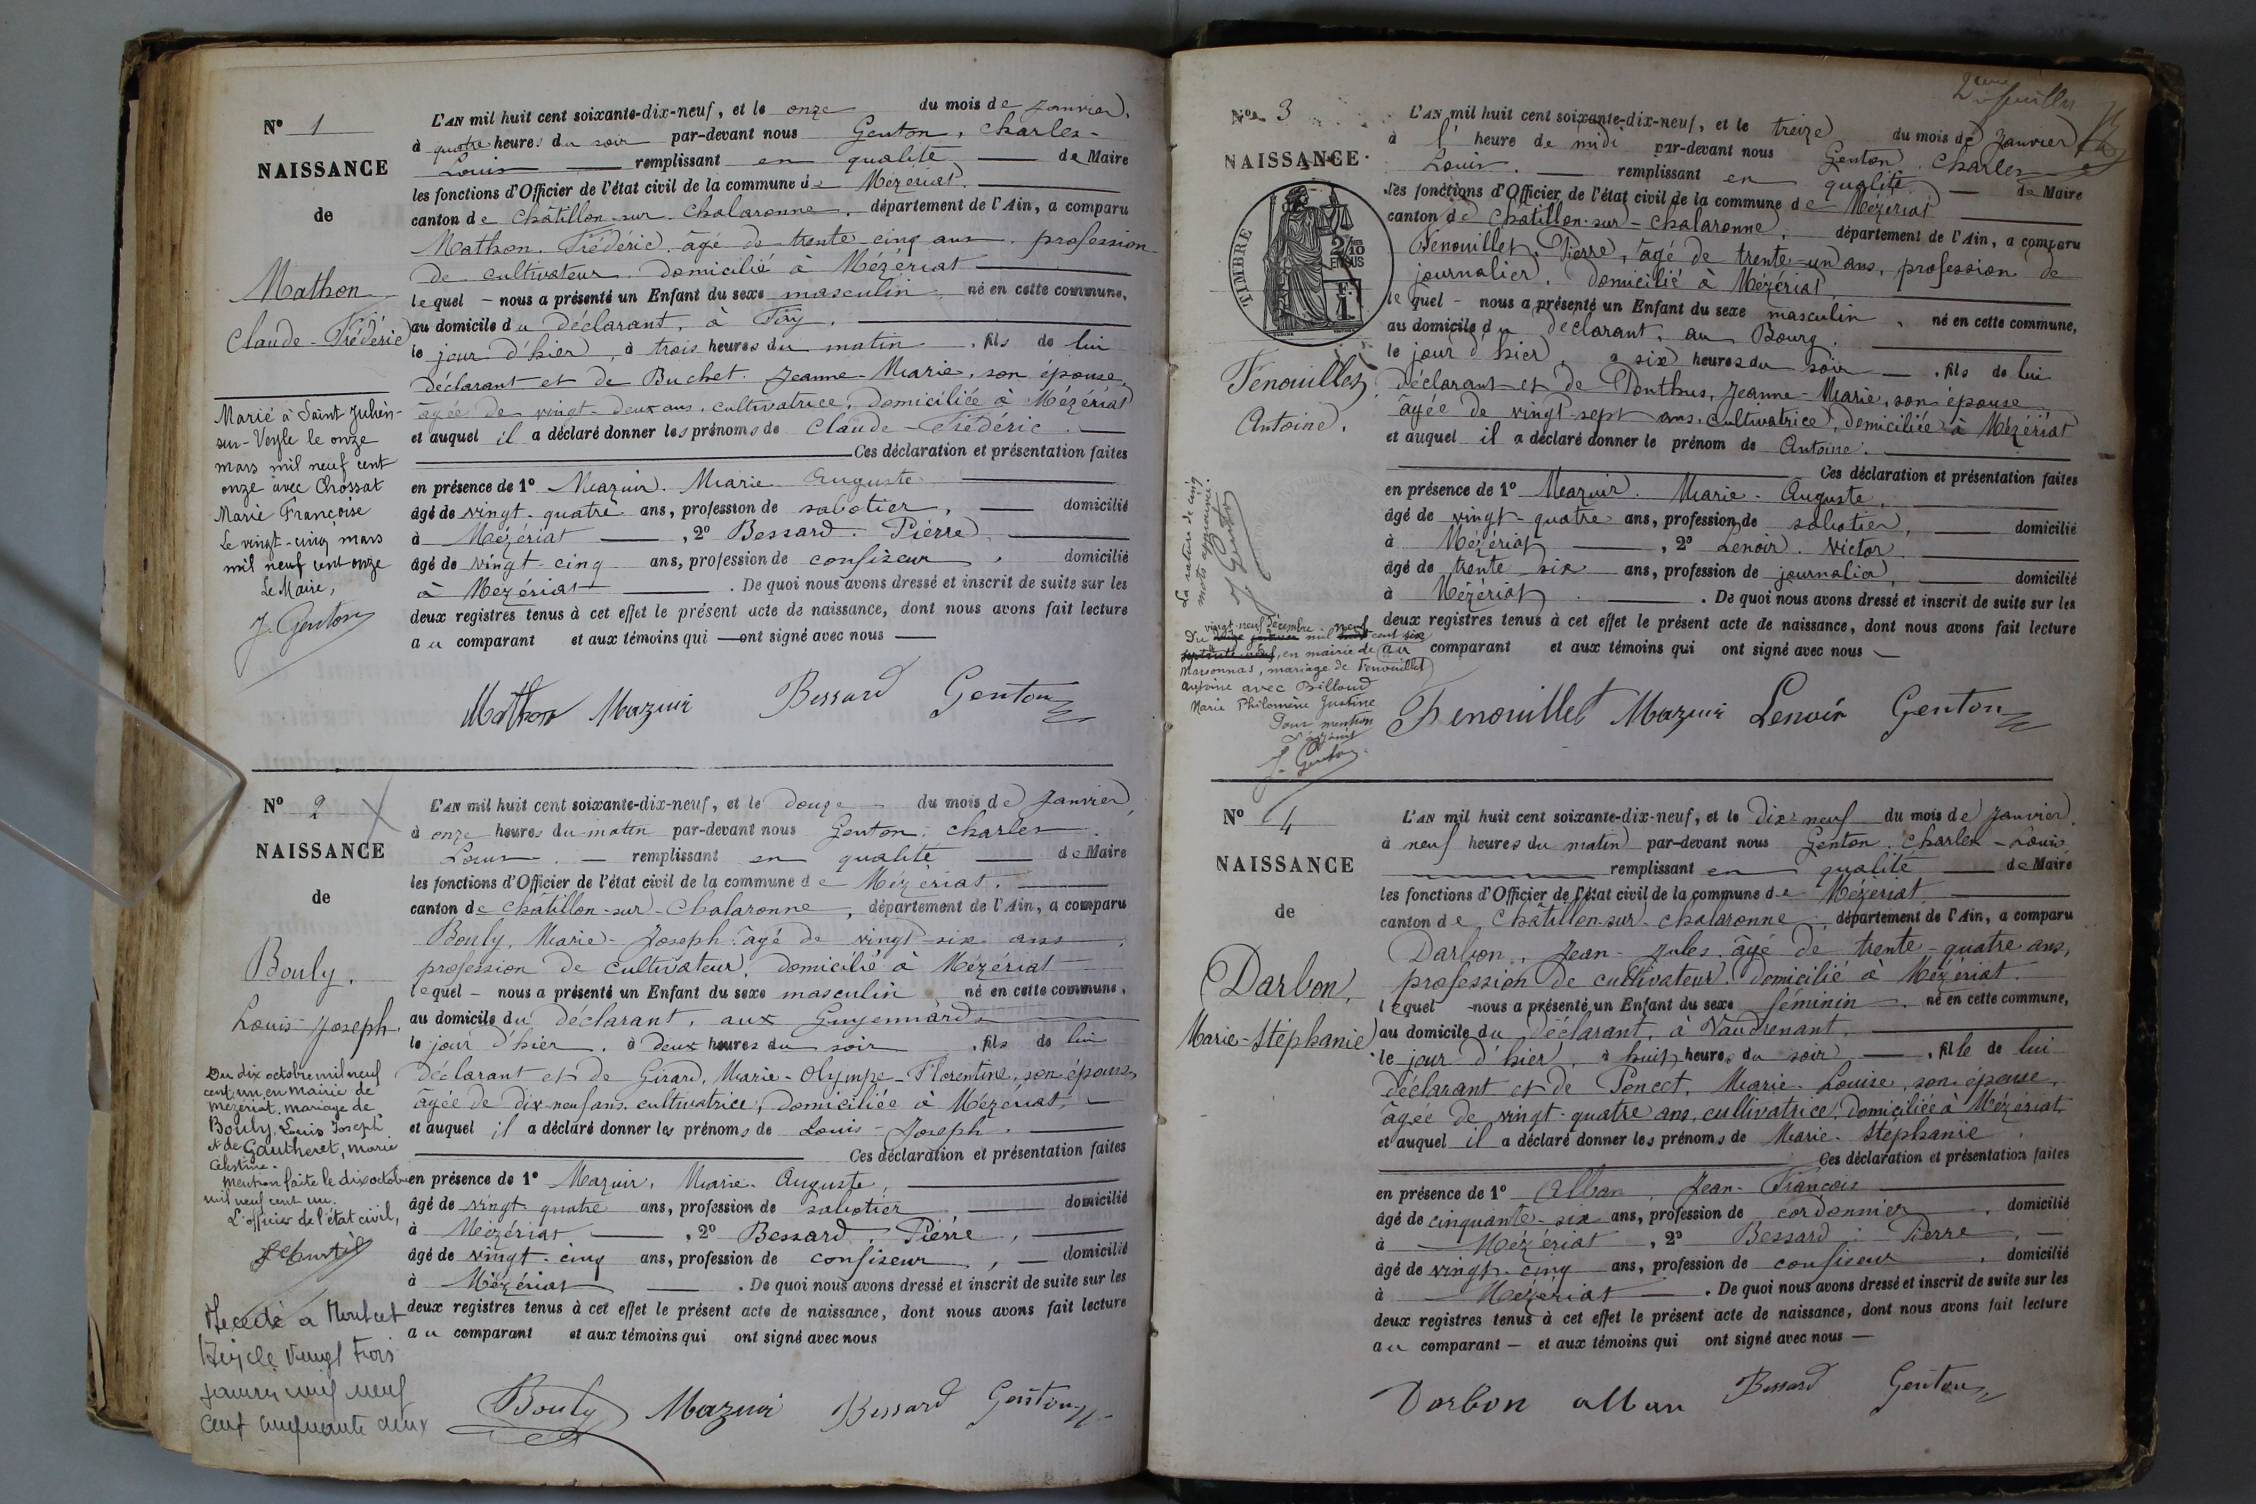 N° 1
NAISSANCE
de
Mathon
Claude-Frédéric
Marié à Saint Julien-
sur-Veyle le onze
mars mil neuf cent
onze avec Chossat
Marie Françoise
Le vingt-cinq mars
mil neuf cent onze
Le Maire,
J. Genton
L'AN mil huit cent soixante-dix-neuf, et le onze du mois de Janvier,
à quatre heures du soir par-devant nous Genton, Charles-
Louis remplissant en qualité de Maire
les fonctions d'Officier de l'état civil de la commune de Mézériat.
canton de Châtillon-sur-Chalaronne, département de l'Ain, a comparu
Mathon, Frédéric, âgé de trente-cinq ans, profession
de cultivateur, domicilié à Mézériat
lequel nous a présenté un Enfant du sexe masculin né en cette commune,
au domicile du déclarant, à Firy,
le jour d'hier, à trois heures du matin, fils de lui
déclarant et de Buchet, Jeanne-Marie, son épouse,
âgée de vingt-deux ans, cultivatrice, domiciliée à Mézériat
et auquel il a déclaré donner les prénoms de Claude-Frédéric.
Ces déclaration et présentation faites
en présence de 1° Mazuir, Marie-Auguste
âgé de vingt-quatre ans, profession de sabotier, domicilié
à Mézériat, 2° Bessard, Pierre,
âgé de vingt-cinq ans, profession de confiseur, domicilié
à Mézériat. De quoi nous avons dressé et inscrit de suite sur les
deux registres tenus à cet effet le présent acte de naissance, dont nous avons fait lecture
au comparant et aux témoins qui ont signé avec nous
Mathon Mazuir Bessard Genton
N° 2
NAISSANCE
de
Bouly.
Louis-Joseph.
Du dix octobre mil neuf
cent un, en mairie de
Mézériat, mariage de
Bouly, Louis Joseph
et de Gautheret, Marie
Célestine.
Mention faite le dix octobre
mil neuf cent un.
L'officier de l'état civil,
Décédé à Montcet
vingt trois
janvier mil neuf
cent cinquante deux
L'AN mil huit cent soixante-dix-neuf, et le douze du mois de Janvier
à onze heures du matin par-devant nous Genton, Charles
Louis. remplissant en qualité de Maire
les fonctions d'Officier de l'état civil de la commune de Mézériat.
canton de Châtillon-sur-Chalaronne, département de l'Ain, a comparu
Bouly, Marie-Joseph, âgé de vingt-six ans,
profession de cultivateur, domicilié à Mézériat
lequel nous a présenté un Enfant du sexe masculin né en cette commune,
au domicile du déclarant, aux Guyennards
le jour d'hier, à deux heures du soir, fils de lui
déclarant et de Girard, Marie-Olympe-Florentine, son épouse,
âgée de dix-neuf ans, cultivatrice, domiciliée à Mézériat,
et auquel il a déclaré donner les prénoms de Louis-Joseph.
Ces déclaration et présentation faites
en présence de 1° Mazuir, Marie-Auguste,
âgé de vingt quatre ans, profession de sabotier domicilié
à Mézériat, 2° Bessard, Pierre,
âgé de vingt-cinq ans, profession de confiseur, domicilié
à Mézériat. De quoi nous avons dressé et inscrit de suite sur les
deux registres tenus à cet effet le présent acte de naissance, dont nous avons fait lecture
au comparant et aux témoins qui ont signé avec nous
Bouly Mazuir Bessard Genton
2ème feuillet
N° 3
NAISSANCE
TIMBRE
2/10 EN SUS
F. 1
Fenouillet,
Antoine.
La rature de cinq
mots approuvée.
J. Genton
vingt-neuf Décembre neuf
Du douze janvier mil huit cent six
septante neuf, en mairie de
Marsonnas, mariage de Fenouillet
Antoine avec Billoud
Marie Philomène Justine
Pour mention
J. Genton
L'AN mil huit cent soixante-dix-neuf, et le treize du mois de Janvier
à l'heure de midi par-devant nous Genton, Charles
Louis. remplissant en qualité de Maire
les fonctions d'Officier de l'état civil de la commune de Mézériat
canton de Châtillon-sur-Chalaronne, département de l'Ain, a comparu
Fenouillet, Pierre, âgé de trente-un ans, profession de
journalier, domicilié à Mézériat,
lequel nous a présenté un Enfant du sexe masculin, né en cette commune,
au domicile du déclarant, au Bourg,
le jour d'hier, à six heures du soir, fils de lui
déclarant et de Ponthus, Jeanne-Marie, son épouse
âgée de vingt-sept ans, cultivatrice, domiciliée à Mézériat
et auquel il a déclaré donner le prénom de Antoine.
Ces déclaration et présentation faites
en présence de 1° Mazuir, Marie-Auguste,
âgé de vingt-quatre ans, profession de sabotier, domicilié
à Mézériat, 2° Lenoir, Victor,
âgé de trente six ans, profession de journalier, domicilié
à Mézériat. De quoi nous avons dressé et inscrit de suite sur les
deux registres tenus à cet effet le présent acte de naissance, dont nous avons fait lecture
au comparant et aux témoins qui ont signé avec nous
Fenouillet Mazuir Lenoir Genton
N° 4
NAISSANCE
de
Darbon,
Marie-Stéphanie
L'AN mil huit cent soixante-dix-neuf, et le dix-neuf du mois de Janvier,
à neuf heures du matin par-devant nous Genton, Charles-Louis,
remplissant en qualité de Maire
les fonctions d'Officier de l'état civil de la commune de Mézériat
canton de Châtillon-sur-Chalaronne, département de l'Ain, a comparu
Darbon, Jean-Jules, âgé de trente-quatre ans,
profession de cultivateur, domicilié à Mézériat.
lequel nous a présenté un Enfant du sexe féminin, né en cette commune,
au domicile du déclarant, à Vaudrenant,
le jour d'hier, à huit heures du soir, fille de lui
déclarant et de Poncet, Marie-Louise, son épouse,
âgée de vingt-quatre ans, cultivatrice, domiciliée à Mézériat,
et auquel il a déclaré donner les prénoms de Marie-Stéphanie.
Ces déclaration et présentation faites
en présence de 1° Alban, Jean-François
âgé de cinquante-six ans, profession de cordonnier, domicilié
à Mézériat, 2° Bessard, Pierre,
âgé de vingt-cinq ans, profession de confiseur, domicilié
à Mézériat. De quoi nous avons dressé et inscrit de suite sur les
deux registres tenus à cet effet le présent acte de naissance, dont nous avons fait lecture
au comparant et aux témoins qui ont signé avec nous
Darbon alban Bessard Genton